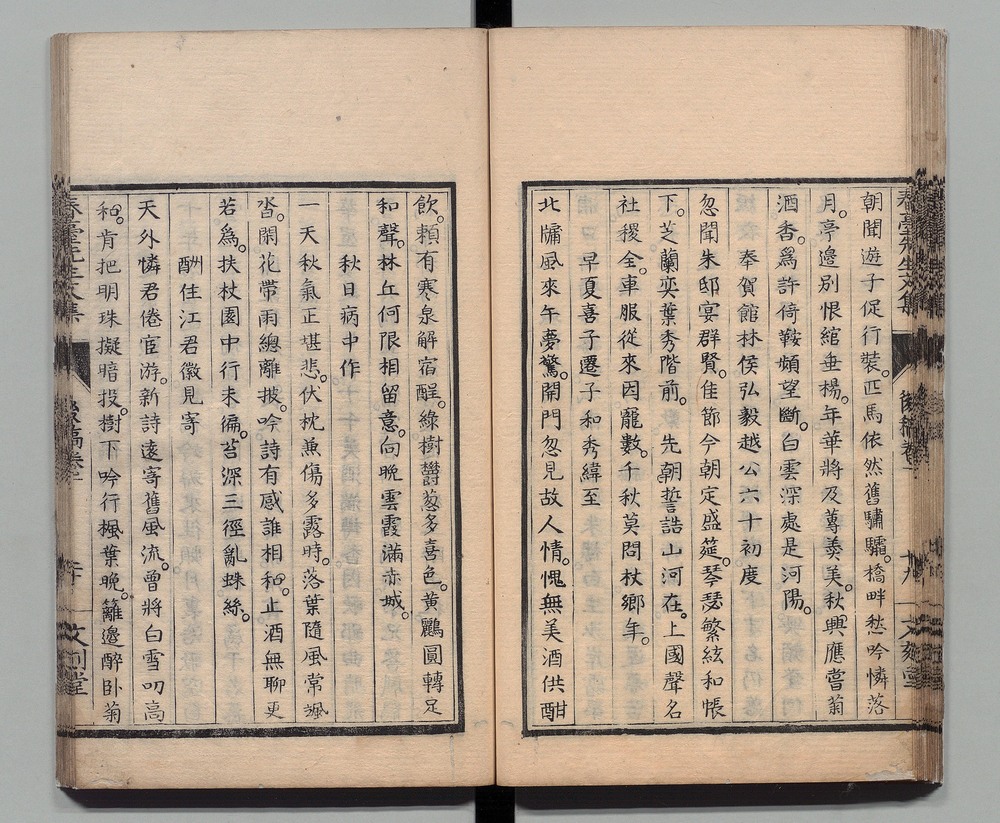 朝聞遊子促行裝。匹馬依然舊驌驦。橋畔愁吟憐落
月。亭邊別恨綰垂楊。年華將及蓴羹美。秋興應嘗菊
酒香。爲許倚鞍頻望斷。白雲深處是河陽。
奉賀館林侯弘毅越公六十初度
忽聞朱邸宴群賢。佳節今朝定盛筵。琴瑟繁絃和帳
下。芝蘭奕葉秀階前。先朝誓誥山河在。上國聲名
社稷全。車服從來因寵數。千秋莫問杖鄉年。
早夏喜子遷子和秀緯至
北牖風來午夢驚。開門忽見故人情。愧無美酒供酣
春臺先生文集 後稿卷 十九 文刻堂
飲。賴有寒泉解宿酲。綠樹欝葱多喜色。黃鸝圓轉足
和聲。林丘何限相留意。向晚雲霞滿赤城。
秋日病中作
一天秋氣正堪悲。伏枕兼傷多露時。落葉隨風常颯
沓。閑花帶雨總離披。吟詩有感誰相和。止酒無聊更
若爲。扶杖園中行未徧。苔深三徑亂蛛絲。
酬住江君徽見寄
天外憐君倦宦游。新詩遠寄舊風流。曾將白雪叨高
和。肯把明珠擬暗投。樹下吟行楓葉晚。籬邊醉臥菊
春臺先生文集 後稿卷 二十 文刻堂